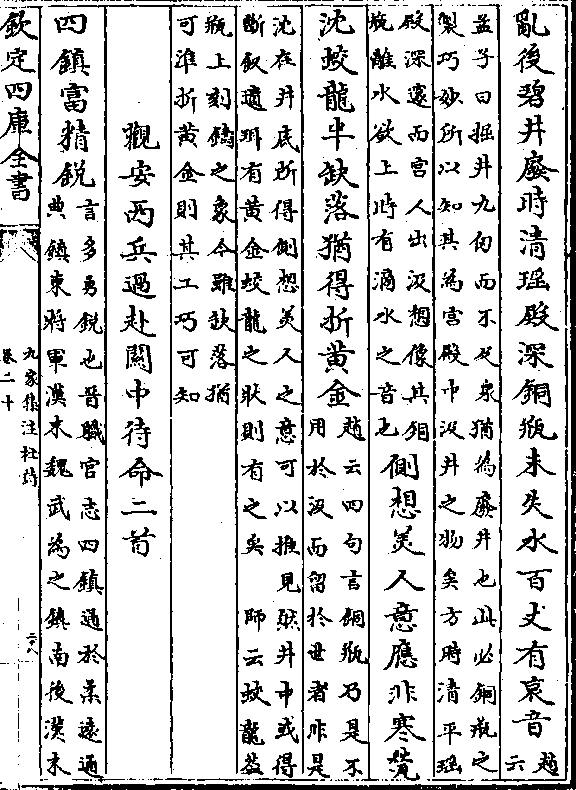 亂後碧井廢時清瑤殿深銅瓶未失水百丈有哀音趙云
孟子曰掘井九仞而不及泉猶為廢井也此必銅瓶之
製巧妙所以知其為宫殿中汲井之物矣方時清平瑶
殿深邃而宫人出汲想像其銅
瓶離水欲上時有滴水之音也側想美人意應非寒甃
沈蛟龍半缺落猶得折黄金趙云四句言銅瓶乃是不
用於汲而留於世者非是
沈在井底所得側想美人之意可以推見然井中或得
斷釵遺珥有黄金蛟龍之狀則有之矣 師云蛟龍葢
瓶上刻鑄之象今雖缺落猶
可準折黄金則其工巧可知
觀安西兵過赴關中待命二首
四鎮富精銳言多勇銳也晉職官志四鎮通於柔遠通
典鎮東將軍漢末魏武為之鎮南後漢末
欽定四庫全書
九家集注杜詩
卷二十
二八